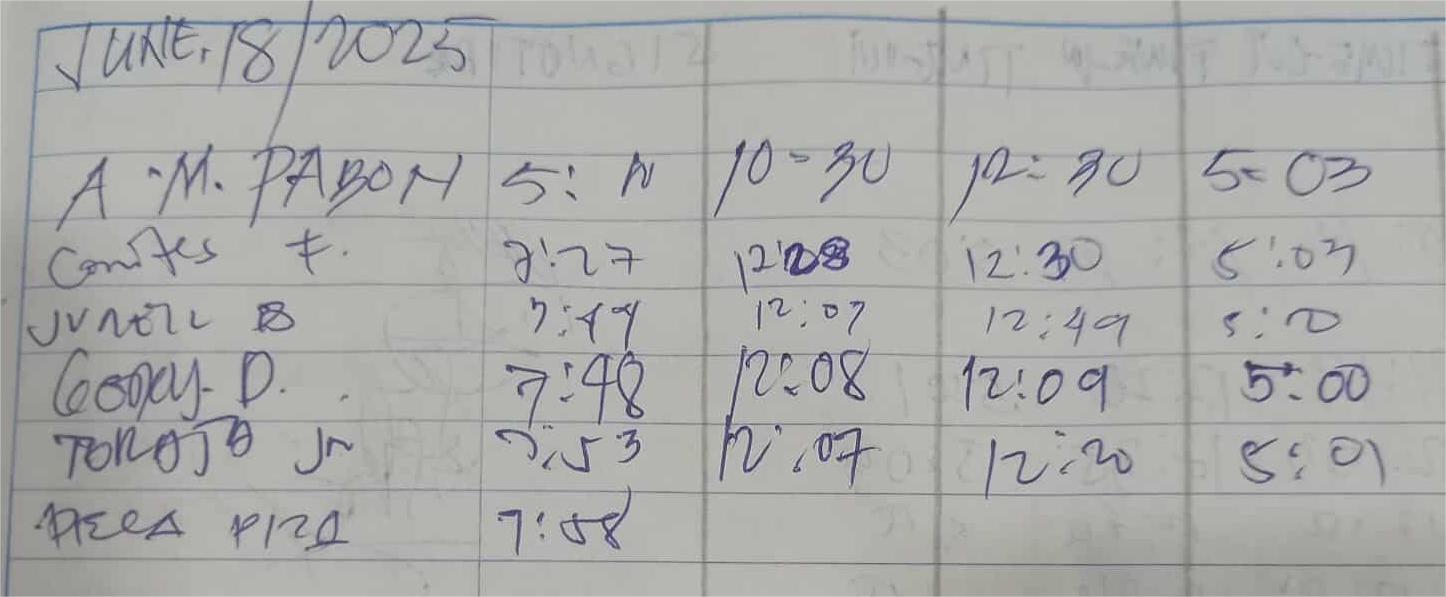 JUNE, 18/2025
A.M. PABON 5: 10-30 12:30 5:03
F. 7:27 12:28 12:30 5:03
JUNELL B 7:49 12:07 12:49 5:20
D. 7:48 12:08 12:09 5:00
Jr 7:53 12:07 12:20 5:01
7:58